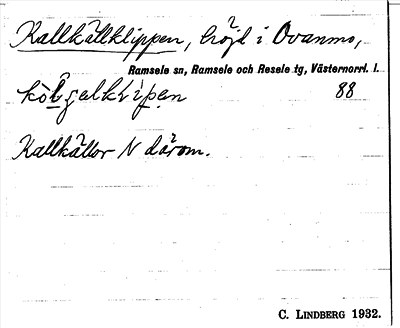 Kallkällklippen, höjd i Ovanmo,
Ramsele sn, Ramsele och Resele tg, Västernorrl. l.
88
Kallkällor N därom.
C. LINDBERG 1932.